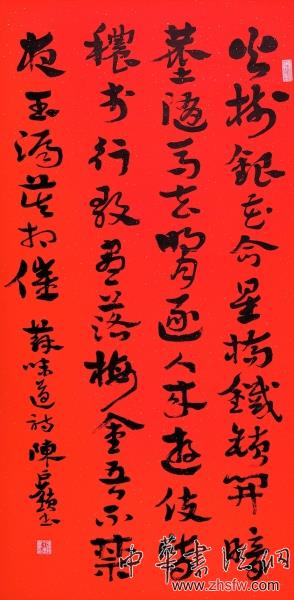 火樹銀花合星橋鐵鎖開暗
塵隨馬去明月逐人來遊伎皆
穠李行歌盡落梅金吾不禁
夜玉漏莫相催 蘇味道詩 陳巨鎖書
中華書法網
www.zhsfw.com